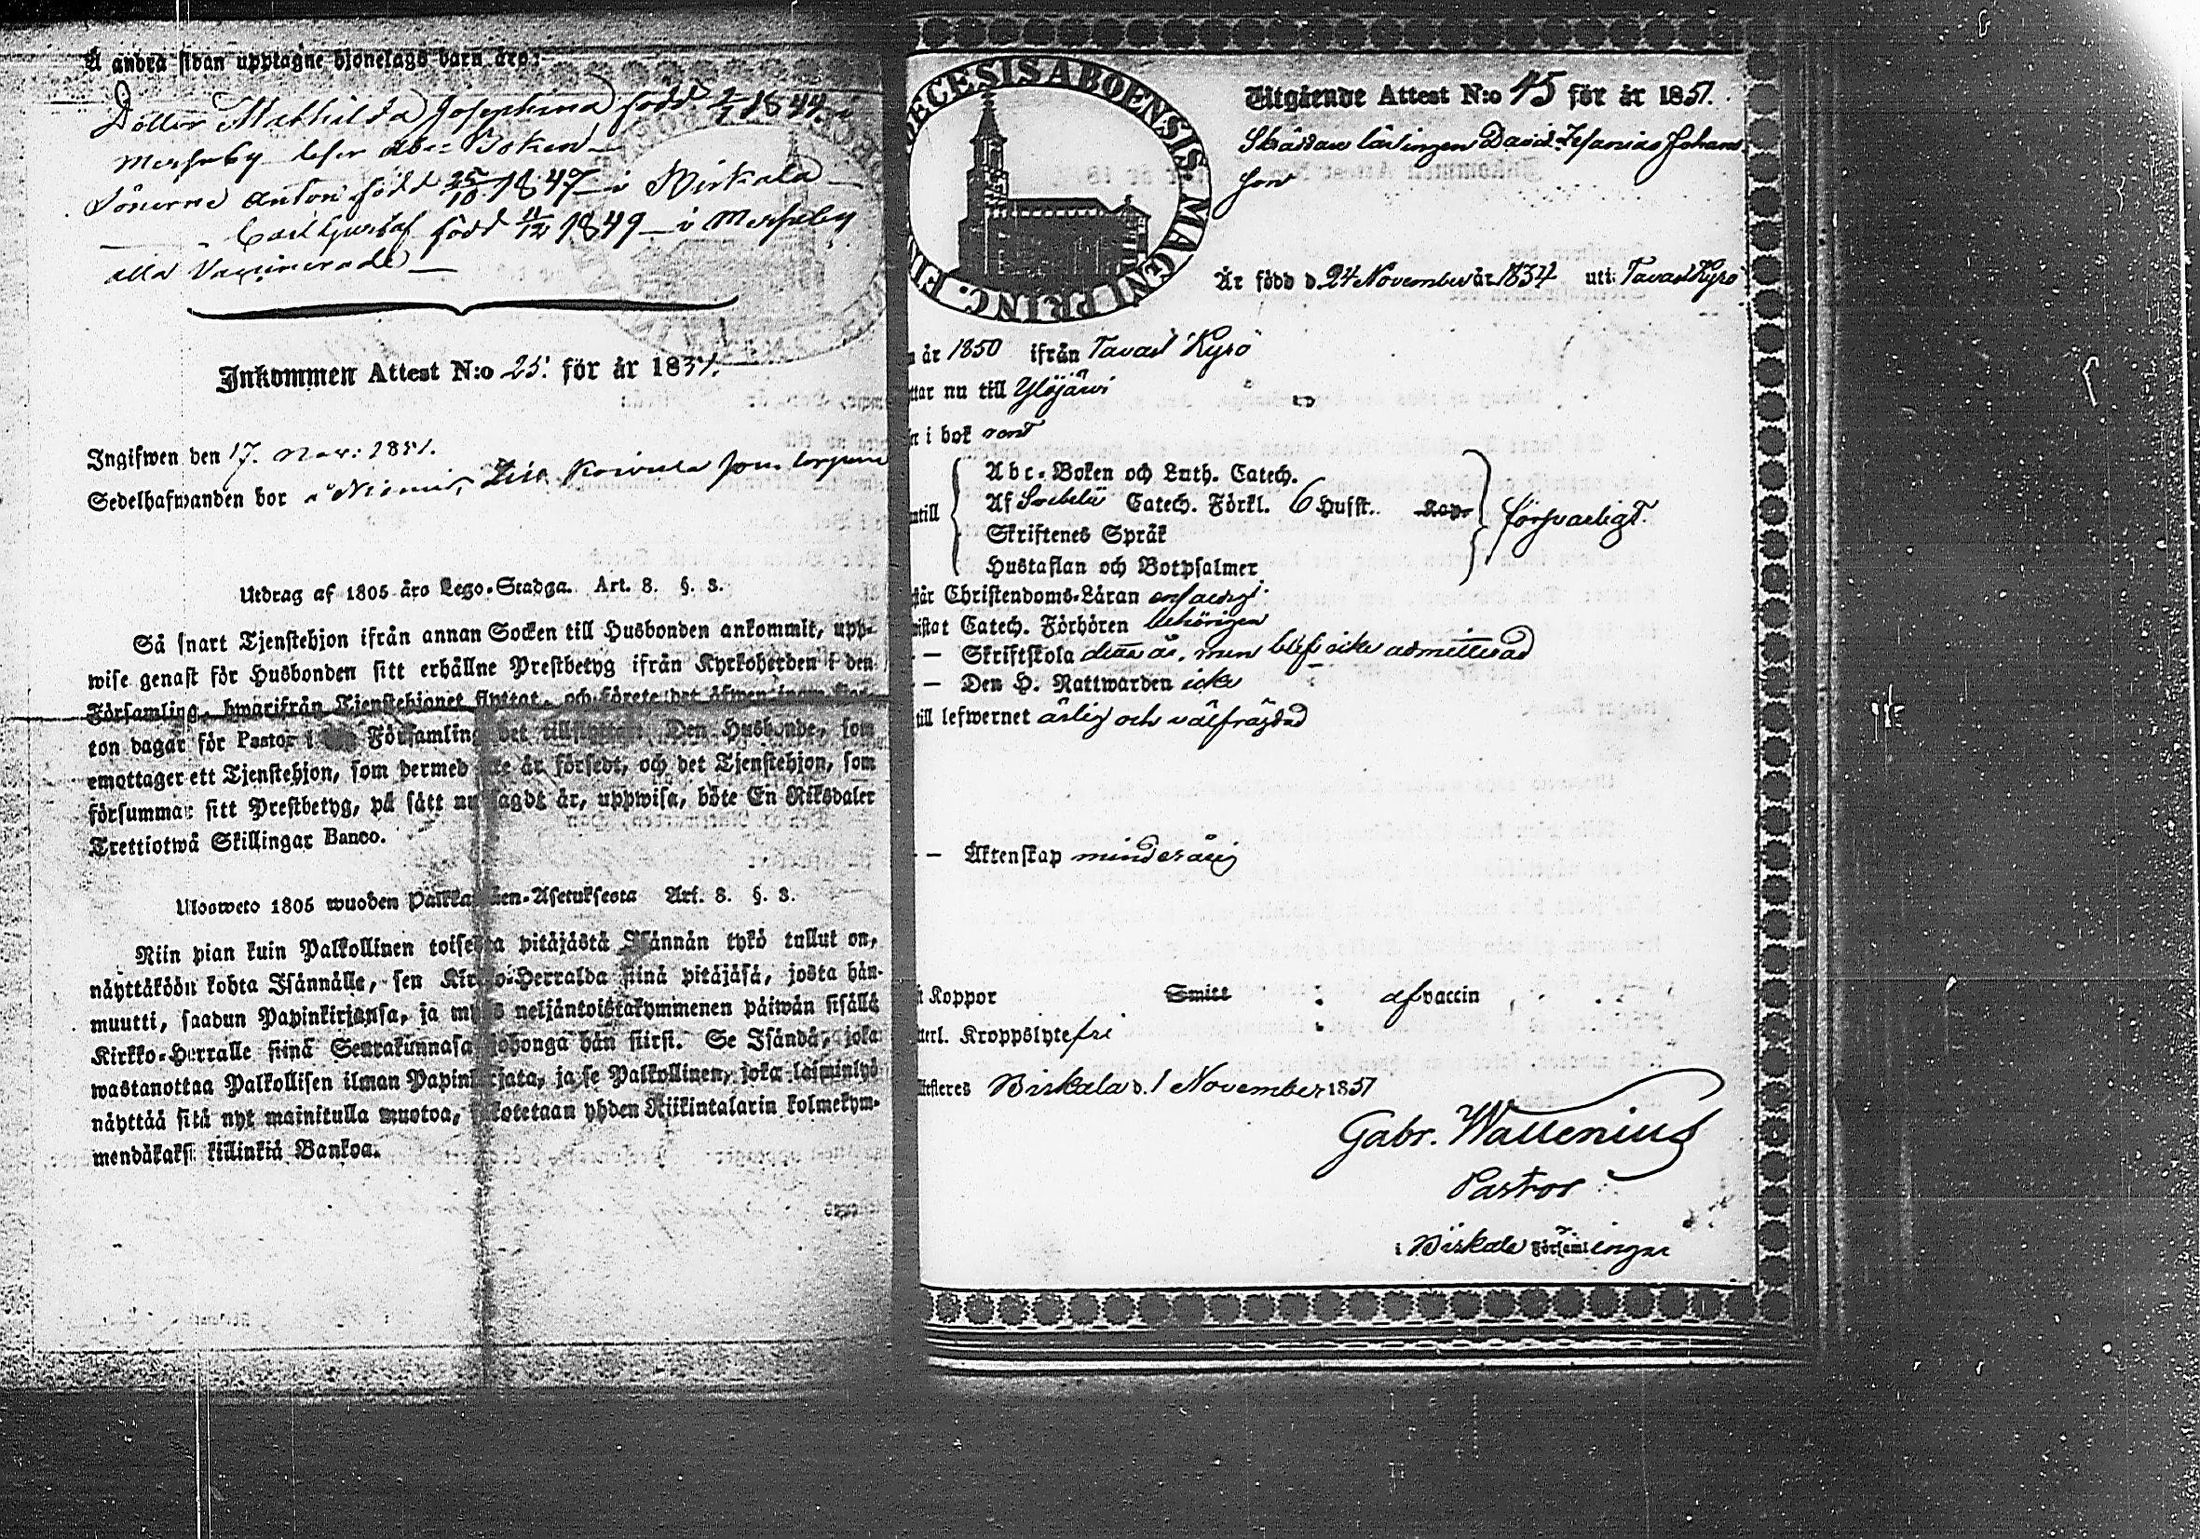 Å andra sidan upptagne hjonelags barn äro:
Dotter Mathilda Josephina född 2/1 1844 i
Messuby läser abc Boken
Sönerne Anton född 25/10 1847 i Birkala
Carl Gustaf född 11/12 1849 i Messuby
alla Vaccinerade
Inkommen Attest N:o 25. för år 1851.
Ingifwen den 17. Nov: 1851.
Sedelhafwanden bor å Niemis, till Koivula som torpare
Utdrag af 1805 års Lego-Stadga. Art. 8. §. 3.
Så snart Tjenstehjon ifrån annan Socken till Husbonden ankommit, upp-
wise genast för Husbonden sitt erhållne Prestbetyg ifrån Kyrkoherden i den
Församling, hwarifrån Tjenstehjonet flyttat, och förete det äfwen inom fjor-
ton dagar för Pastor i Församling det tillflyttat. Den Husbonde, som
emottager ett Tjenstehjon, som dermed icke är försedt, och det Tjenstehjon, som
försummar sitt Prestbetyg, på sätt nu sagdt är, uppwisa, böte En Riksdaler
Trettiotwå Skillingar Banco.
Ulosweto 1805 wuoden Palkkalisten-Asetuksesta Art. 8. §. 3.
Niin pian kuin Palkollinen toisesta pitäjästä Isännän tykö tullut on,
näyttäköön kohta Isännälle, sen Kirkko-Herralda siinä pitäjäsä, josta hän
muutti, saadun Papinkirjansa, ja myös neljäntoistakymmenen päiwän sisällä
Kirkko-Herralle siinä Seurakunnasa johonga hän siirsi. Se Isändä, joka
wastanottaa Palkollisen ilman Papinkirjata, ja se Palkollinen, joka laiminlyö
näyttää sitä nyt mainitulla muotoa, sakotetaan yhden Riikintalarin kolmekym-
mendäkaksi killinkiä Bankoa.
DECESIS ABOENSIS MAGNI PRINC. FIN
Utgående Attest N:o 45 för år 1851.
Skräddare lärlingen David Zefanias Johans
son
Är född d. 24 November år 1834 uti Tavast Kyro
n år 1850 ifrån Tavast Kyro
ttar nu till Ylöjärvi
n i bok rent
ntill
Abc-Boken och Luth. Catech.
Af Svebelii Catech. Förkl. 6 Hufst. Kap.
Skriftenes Språk
Hustaflan och Botpsalmer
försvarligt.
står Christendoms-Läran enfaldigt.
wistat Catech. Förhören behörigen
— Skriftskola detta år, men blef icke admitterad
— Den H. Nattwarden icke
till lefwernet ärlig och välfrägdad
— Äktenskap minderårig
t Koppor Smitt af vaccin
terl. Kroppslyte fri
ttesteres Birkala d. 1 November 1851
Gabr. Wallenius
Pastor
i Birkala Församlingar